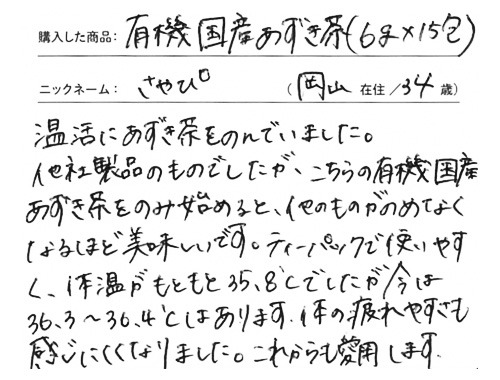 購入した商品: 有機国産あずき茶(6g×15包)
ニックネーム: さやぴ (岡山 在住/34 歳)
温活にあずき茶をのんでいました。
他社製品のものでしたが、こちらの有機国産
あずき茶をのみ始めると、他のものがのめなく
なるほど美味しいです。ティーパックで使いやす
く、体温がもともと35.8℃でしたが今は
36.3〜36.4℃はあります。体の疲れやすさも
感じにくくなりました。これからも愛用します。